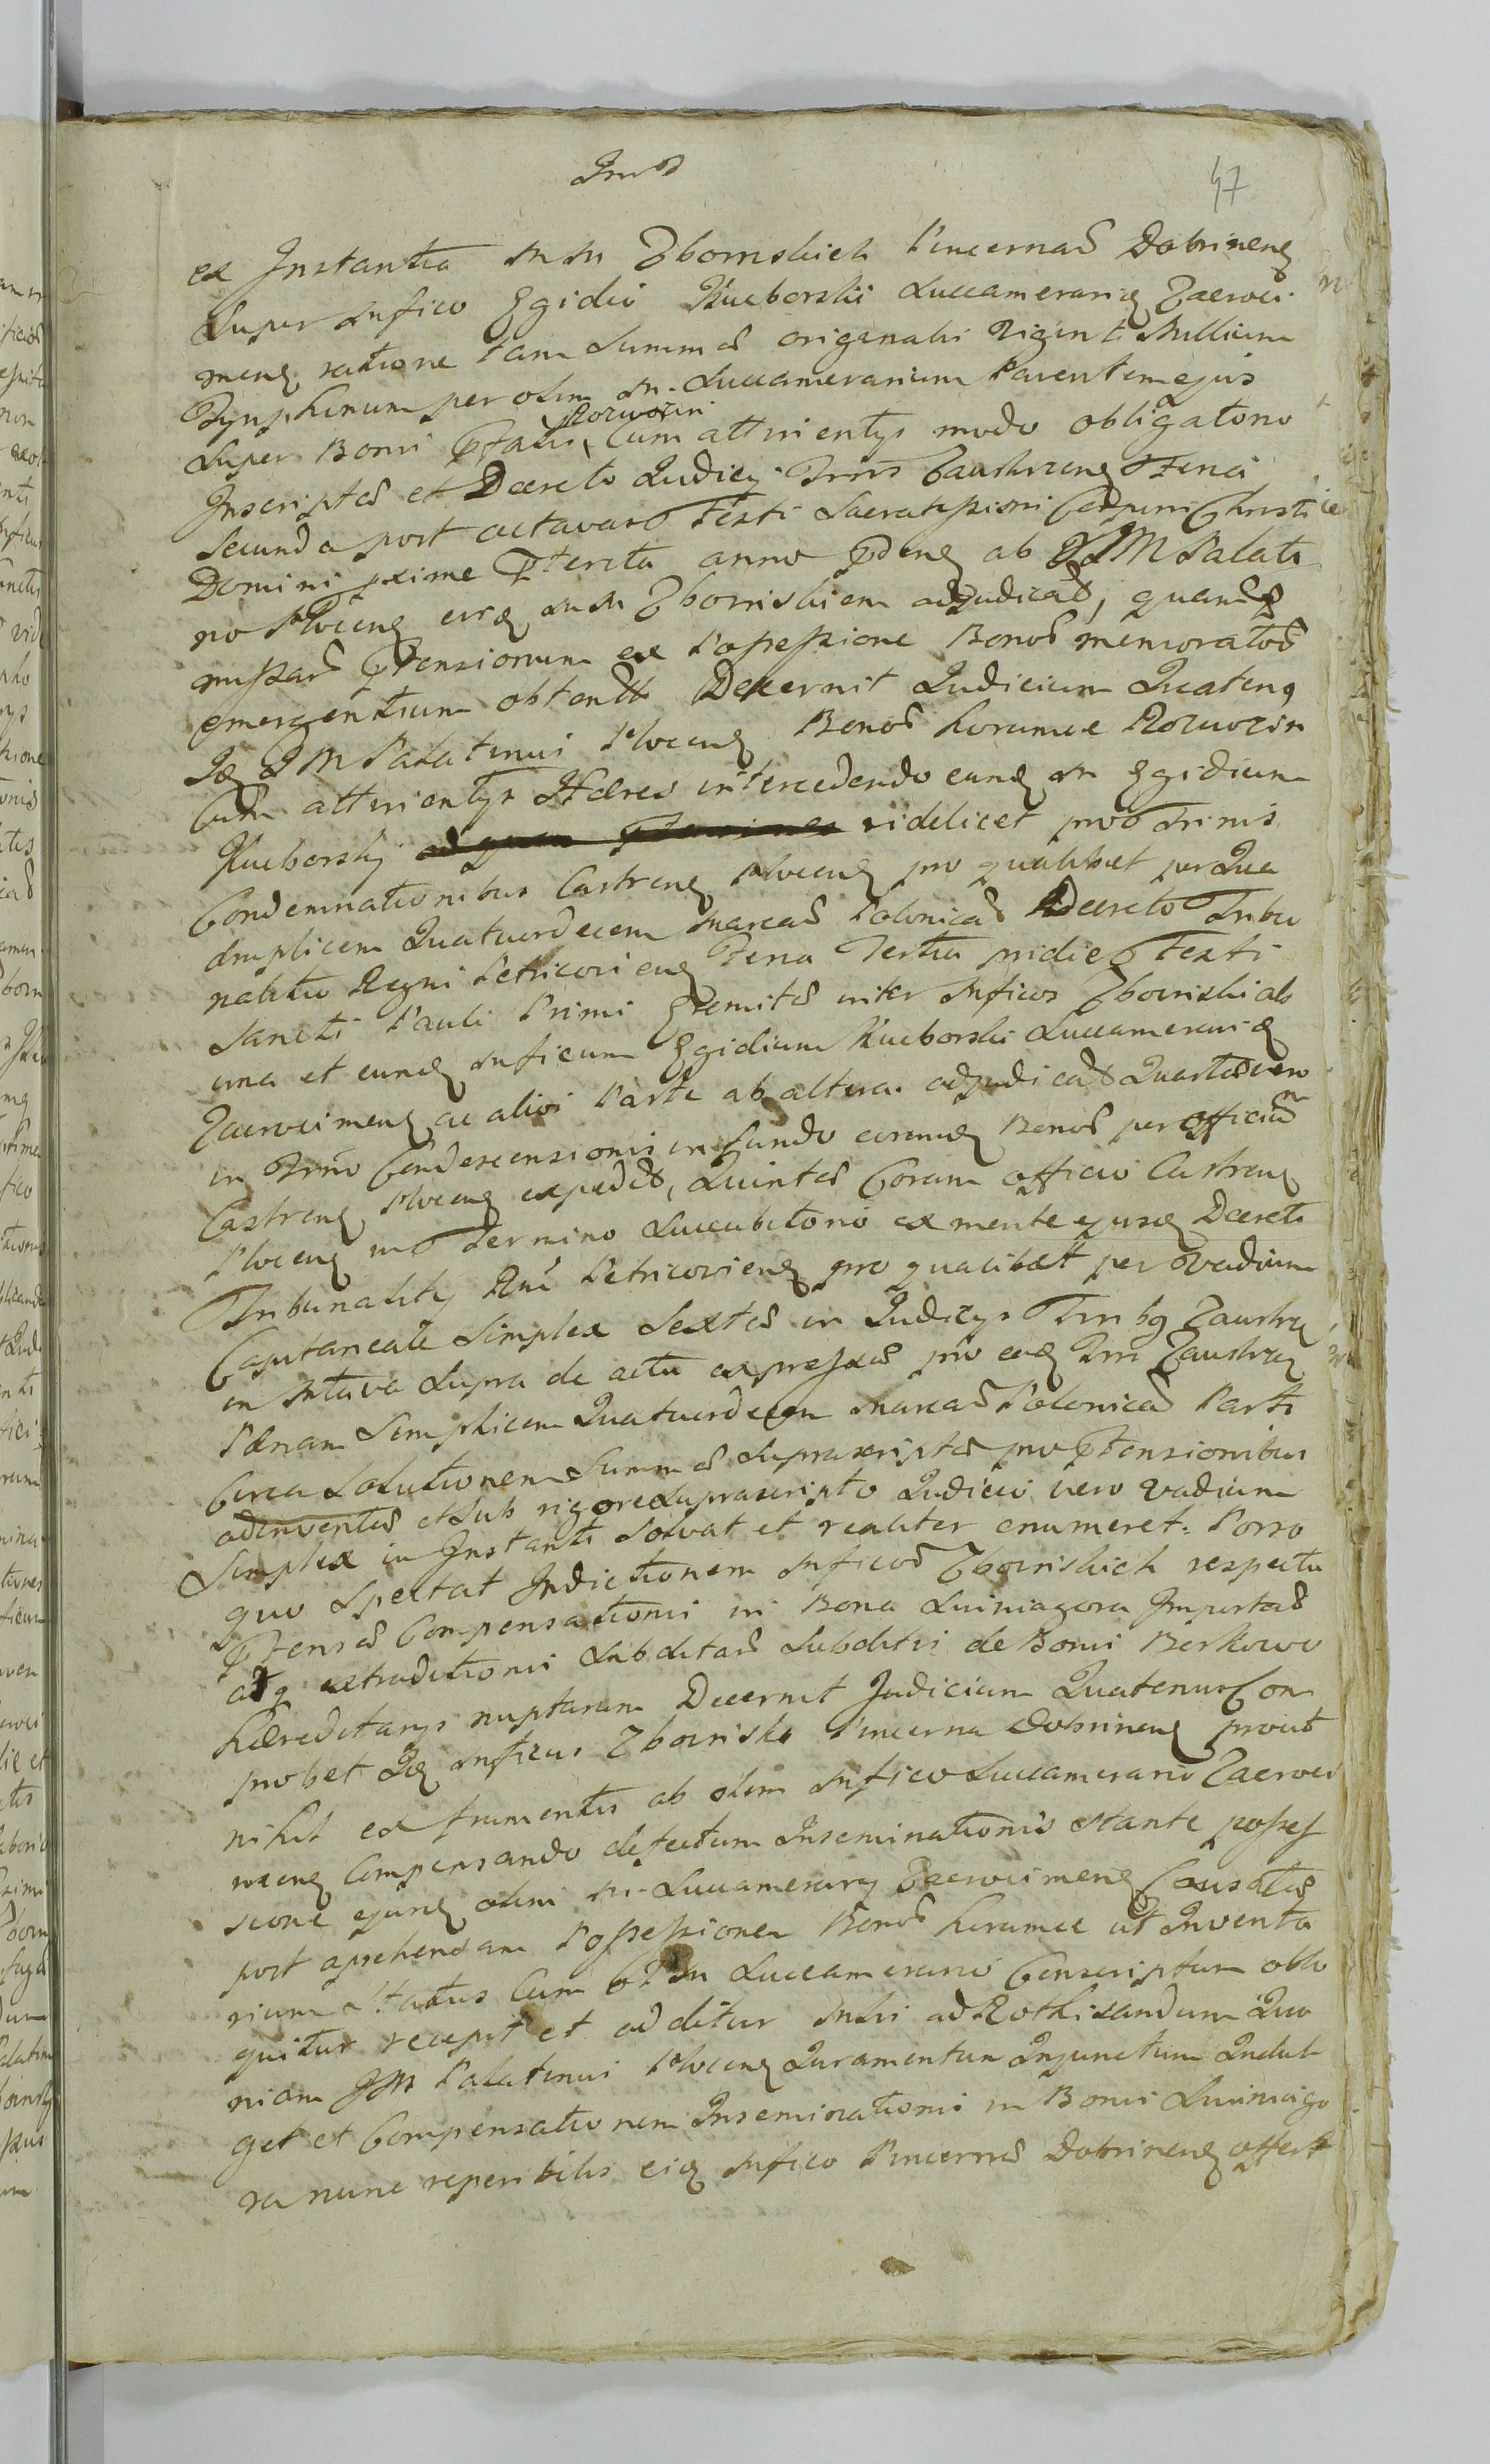 47
ex Instantia M M Zboinskich Pincernae Dobrinens
super Mfico Egidio Kucborski Succamerario Zacroci
mens ratione tam Summae originalis Viginti Millium
Tynphonum per olim M Succamerarium Parentem ejus
super Bonis Rozwozin cum attinentys modo obligatorio
Inscriptae et Decreto Judicy Trnis Zauskrzens Feria
secunda post octavas Festi Sacratissimi Corporis Christi
Domini pxime pterita anno pdens ab J M Palati
no Plocens erga M M Zboinskiem adjudicat, quam
missar ptensionum ex Possessione Bonor memorator
emergentium obtent Decernit Judicium Quatenq
Iq J M Palatinus Plocens Bonor horumce Rozwozin
cum attinentys Haeres intercedendo eunq M Egidium
Kucborsky videlicet pro Trinis
Condemnationibus Castrens Plocens pro qualibet per Qua
druplicem Quatuordecem Marcas Polonicas Decreto Tribu
nalitio Regni Petricoviens Feria Tertia pridie Festi
Sancti Pauli Primi Eremitae inter Mficos Zboinski ab
una et eunq Mficum Egidium Kucborski Succamerariq
Zacrocimens ac alios Parte ab altera adjudicat Quarta vero
in Trno Condescensionis in fundo eorunq Bonor per officiu
Castrens Plocens expedit, Quinta Coram officio Castrens
Plocens in Termino Succubitorio ex mente ejusq Decreti
Tribunality Rni Petricoviens pro qualibet per Vadium
Capitaneale Simplex Sexta in Judicys Trnbq Zauskrz
in octava supra de actu expressae pro eaq Trni Zauskrz
Paenam Simplicem Quatuordecem Marcas Polonicas Parti
Circa Solutionem Summae Suprascriptae pro ptensionibus
adinventae et Sub rigore Suprascripto Judicio vero Vadium
Simplex in Instanti Solvat et realiter enumeret. Porro
quo Spectat Indictionem Mficor Zboinskich respectu
ptensae Compensationis in Bona Luiniagora Importat
atq extraditionis Subditar Subditis de Bonis Berkowo
haereditarys nuptarum Decernit Judicium Quatenus Com
probet Iq Mficus Zboinski Pincerna Dobrinens prout
nihil ex frumentis ab olim Mfico Succamerario Zacroci
mens Compensando defectum Inseminationis stante posses
sione ejusq olim M Succamerary Zacrocimens Causatae
post aprehensam Possessionem Bonor horumce ut Inventa
rium status Cum M Succamerario Conscriptum oblo
quitur recepit et additur Mbi ad Rothisandum Quo
niam J M Palatinus Plocens Juramentum Injunctum Indul
get et Compensationem Inseminationis in Bonis Luiniago
ra nunc reperibilis eiq Mfico Pincernae Dobrinens offert